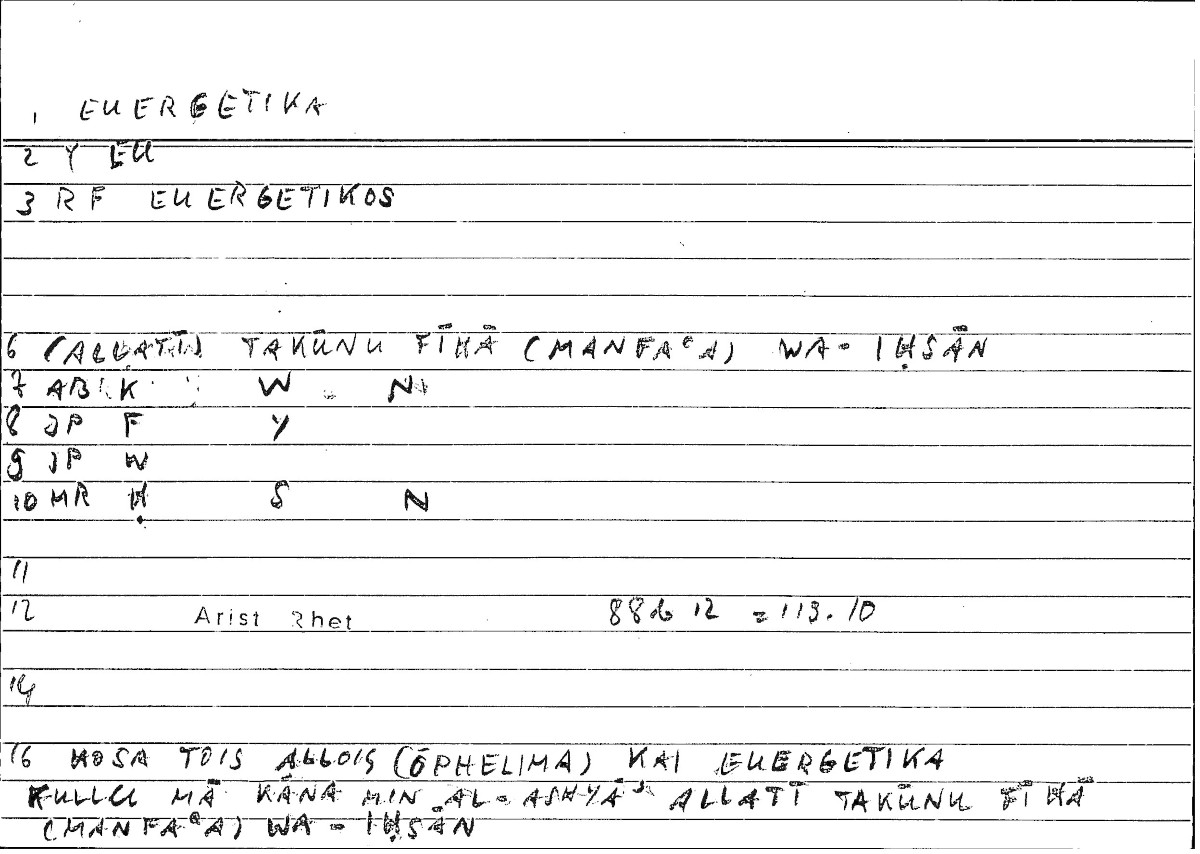 1 EUERGETIKA
2 Y EU
3 RF EUERGETIKOS
6 (ALLATĪ) TAKŪNU FĪHĀ (MANFAʿA) WA-IḤSĀN
7 AB K W N
8 JP F Y
9 JP W
10 MR Ḥ S N
11
12 Arist Rhet 88b 12 = 113.10
14
16 HOSA TOIS ALLOIS (ŌPHELIMA) KAI EUERGETIKA
KULLU MĀ KĀNA MIN AL-ASHYĀʾ ALLATĪ TAKŪNU FĪHĀ
(MANFAʿA) WA-IḤSĀN